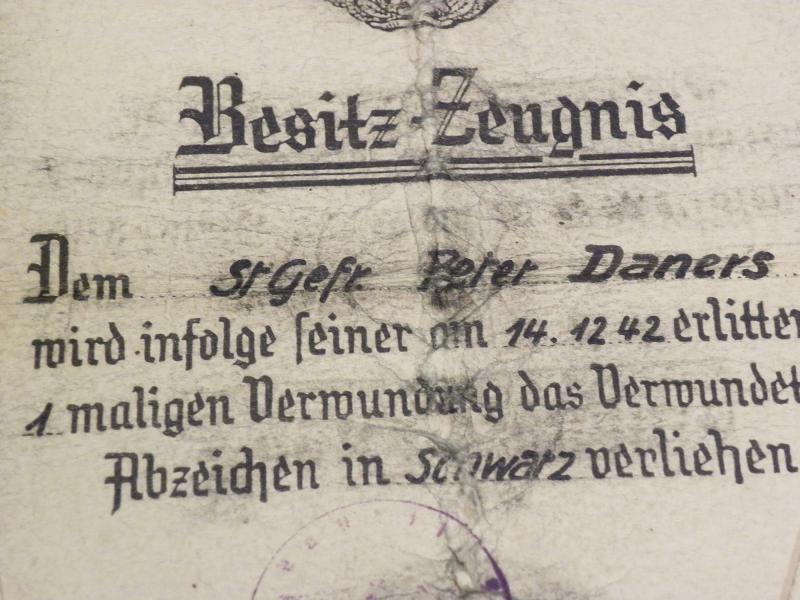 Besitz-Zeugnis
Dem St Gefr. Peter Daners
wird infolge seiner am 14. 12 42 erlitten
1 maligen Verwundung das Verwundet
Abzeichen in Schwarz verliehen